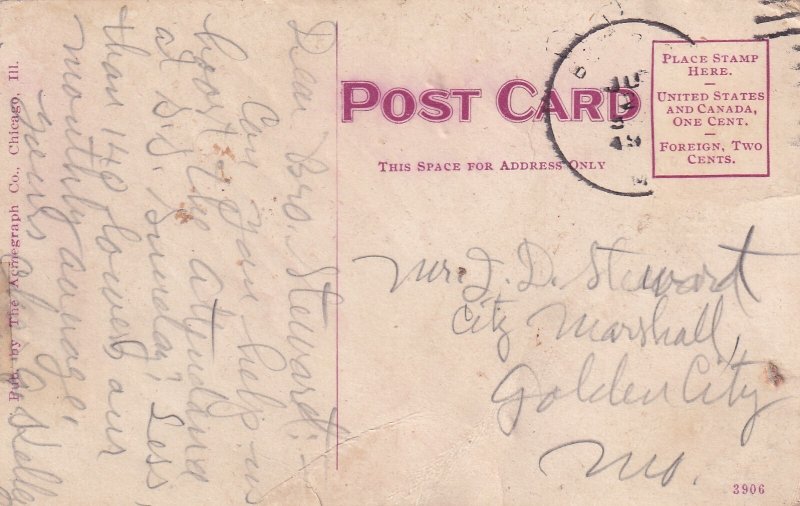 Dear Bro. Steward:-
Can you help us
boost the attendance
at S.S. Sunday? Less
than 140 lowers our
monthly average.
Yours
Kelly
Pub. by The Acmegraph Co., Chicago, Ill.
POST CARD
THIS SPACE FOR ADDRESS ONLY
PLACE STAMP
HERE.
UNITED STATES
AND CANADA,
ONE CENT.
FOREIGN, TWO
CENTS.
Mr. J. D. Steward
City Marshall,
Golden City
Mo.
3906